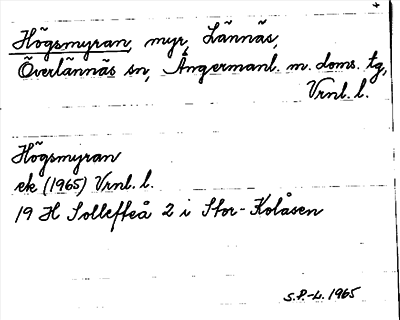 Högsmyran, myr, Lännäs,
Överlännäs sn, Ångermanl. m. doms. tg,
Vrnl. l.
Högsmyran
ek (1965) Vrnl. l.
19 H Sollefteå 2 i Stor-Kolåsen
S.P.-L. 1965